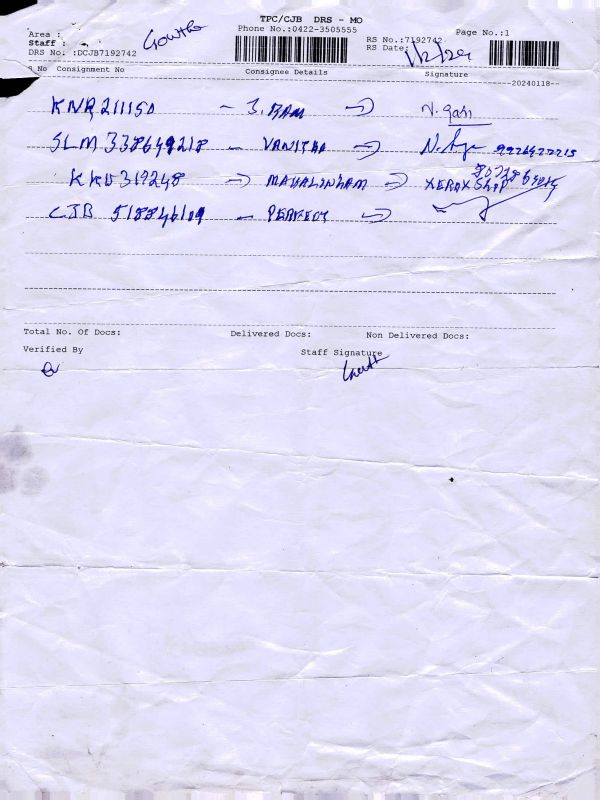 TPC/CJB DRS - MO
Phone No.:0422-3505555
Page No.:1
Area :
Gowtha
RS No.:7192742
Staff :
RS Date:
1/2/24
DRS No. :DCJB7192742
S No Consignment No Consignee Details Signature
20240118
KNR211150 - J. RAM
SLM 338649218 - VANITHA N.
KKD319248 MAHALINHAM XEROX SHOP
CJB 518846109 - PERFECT
Total No. Of Docs: Delivered Docs: Non Delivered Docs:
Verified By Staff Signature